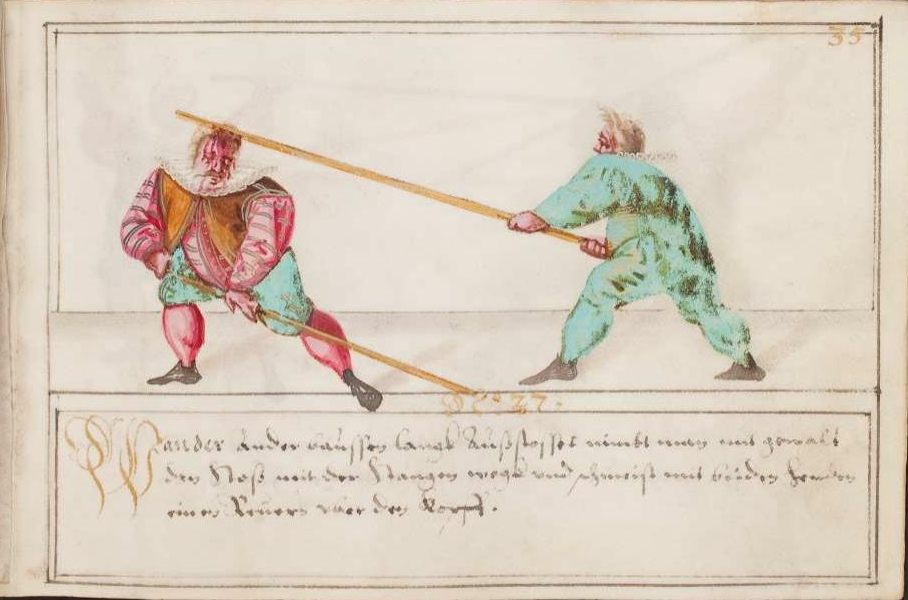 35
N° 27.
Wan der ander daussen langk Außstosset nimbt man mit gewalt
den Stoß mit der Stangen wegk und schmeist mit beiden henden
einen Reuern uber den Kopff.